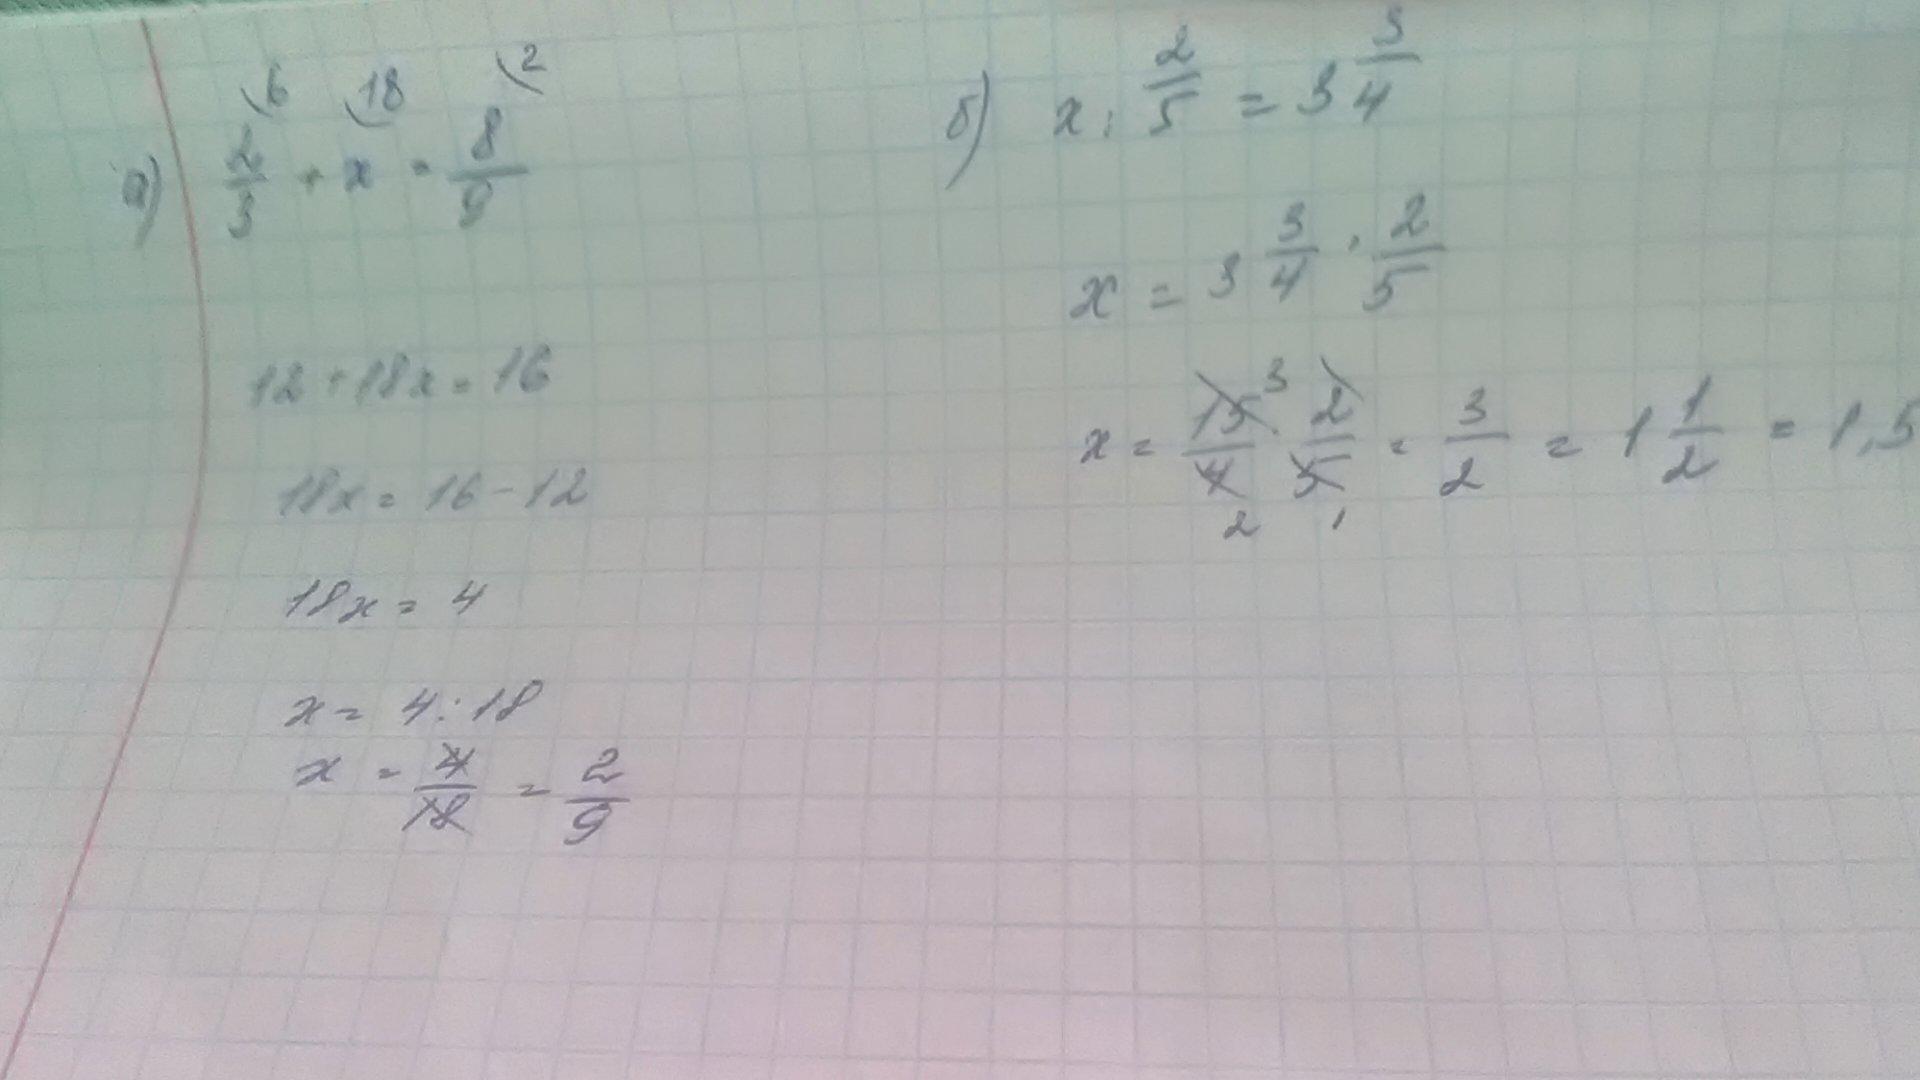 а) 2/3 \6 + x \18 = 8/9 \2
12 + 18x = 16
18x = 16 - 12
18x = 4
x = 4 : 18
x = 4/18 = 2/9
б) x : 2/5 = 3 3/4
x = 3 3/4 · 2/5
x = 15 3/4 2 · 2/5 1 = 3/2 = 1 1/2 = 1,5